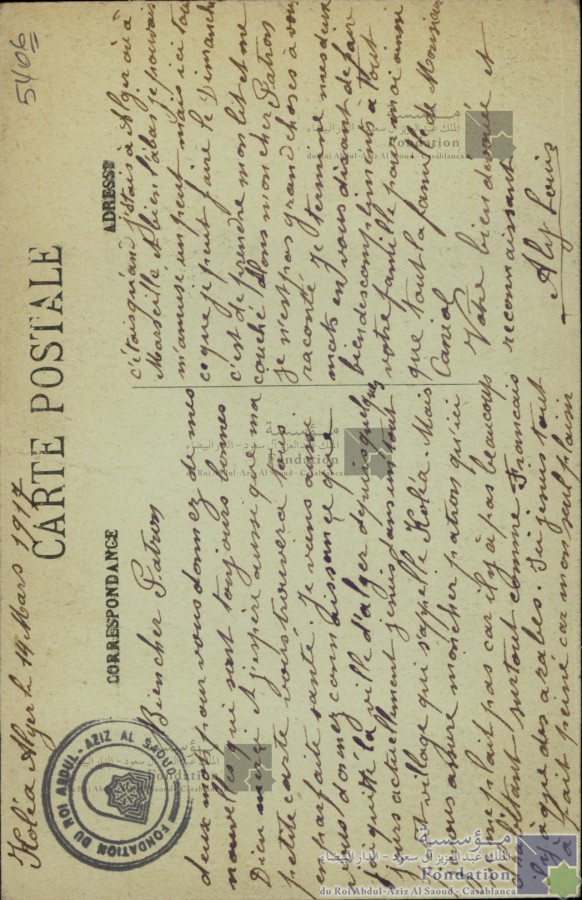 5406
CARTE POSTALE
CORRESPONDANCE
ADRESSE
Koléa Alger le 14 Mars 1917
Bien cher Patron
deux mots pour vous donnez de mes
nouvelles qui sont toujours bonnes
Dieu merci et j'espère aussi que ma
petite carte vous trouvera tous
en parfaite santé. Je viens aussi
vous donnez connaissance que
j'ai quitté la ville d'alger depuis quelques
jours actuellement je suis dans un tout
petit village qui s'appelle Koléa. Mais
je vous assure mon cher patron qu'ici
me plait pas car il y à pas beaucoup
habittant surtout comme Français
il y à que des arabes. Ici je suis tout
à fait peiné car mon seul plaisir
c'étais quand j'étais à Alger ou à
Marseille et bien labas je pouvais
m'amuse un peut mais ici tout
ce que je peut faire le Dimanche
c'est de prendre mon lit et me
couché. Alons mon cher Patron
je n'est pas grand choses à vous
raconté. Je termine mes deux
mots en vous disant de faire
bien des compliments à tout
votre famille pour moi ainsi
que tout la famille de Monsieur
Votre bien dévouée et
reconnaissant
Aly Louis
FONDATION DU ROI ABDUL-AZIZ AL SAOUD
مؤسسة
الملك عبد العزيز آل سعود - الدار البيضاء
Fondation
du Roi Abdul-Aziz Al Saoud - Casablanca